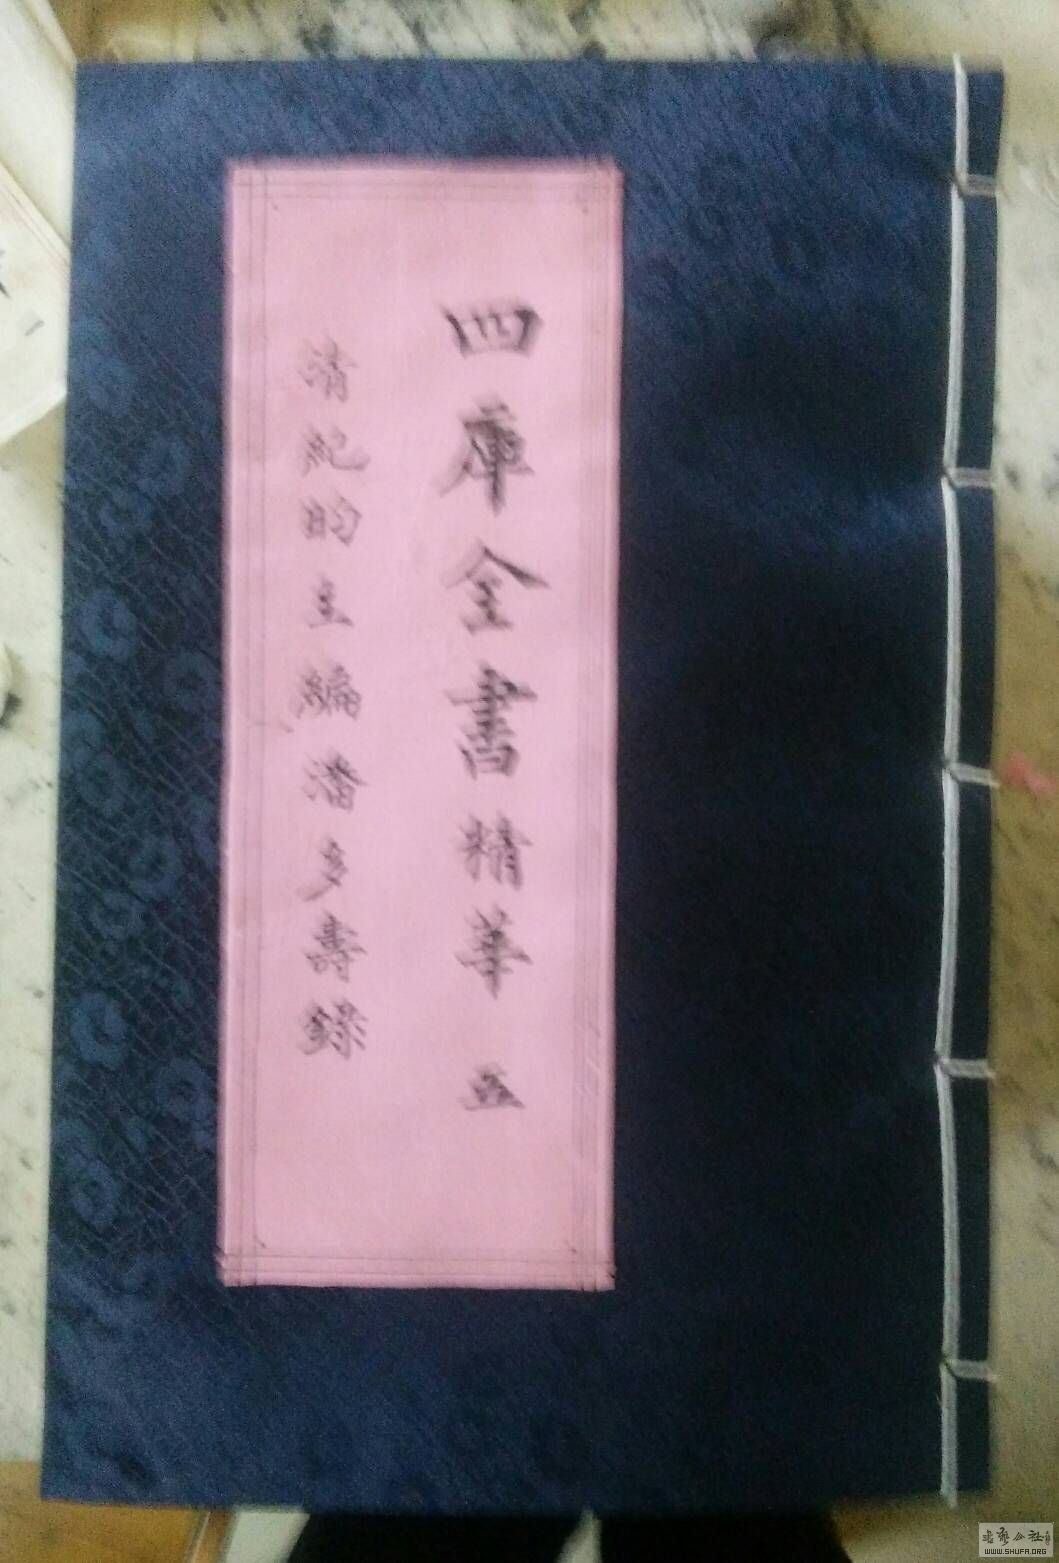 四庫全書精華 五
清紀昀主編潘多壽錄
書法公社
WWW.SHUFA.ORG